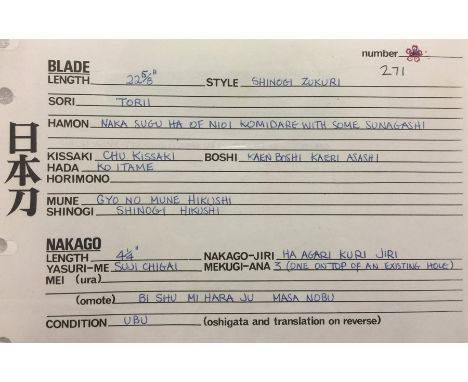 number
271
BLADE
LENGTH 22 5/8" STYLE SHINOGI ZUKURI
SORI TORII
HAMON NAKA SUGU HA OF NIOI KOMIDARE WITH SOME SUNAGASHI
KISSAKI CHU KISSAKI BOSHI KAEN BOSHI KAERI ASASHI
HADA KO ITAME
HORIMONO
日本刀
MUNE GYO NO MUNE HIKUSHI
SHINOGI SHINOGI HIKUSHI
NAKAGO
LENGTH 4 1/4" NAKAGO-JIRI HA AGARI KURI JIRI
YASURI-ME SUJI CHIGAI MEKUGI-ANA 3 (ONE ON TOP OF AN EXISTING HOLE)
MEI (ura)
(omote) BI SHU MI HARA JU MASA NOBU
CONDITION UBU (oshigata and translation on reverse)